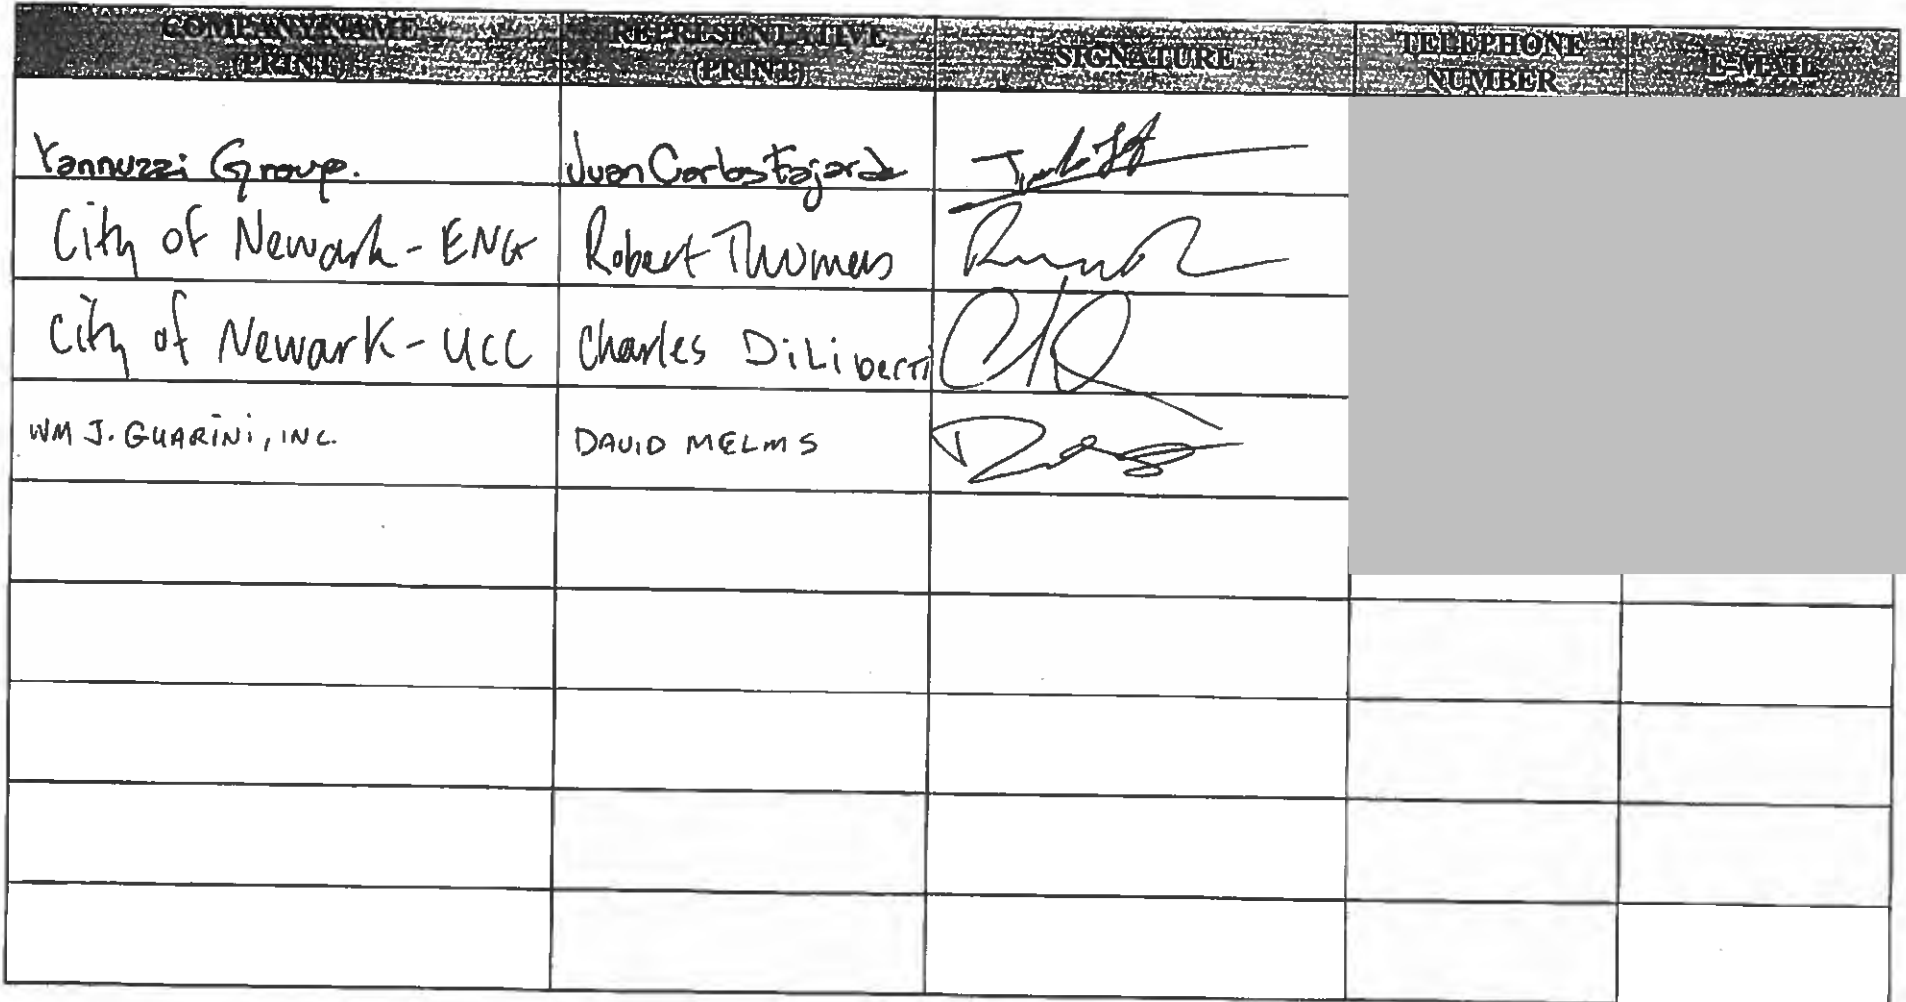 COMPANY NAME
(PRINT)
REPRESENTATIVE
(PRINT)
SIGNATURE
TELEPHONE
NUMBER
E-MAIL
Yannuzzi Group. Juan Carlos Fajardo
City of Newark - ENG Robert Thomas
City of Newark - UCC Charles DiLiberti
WM J. GUARINI, INC. DAVID MELMS